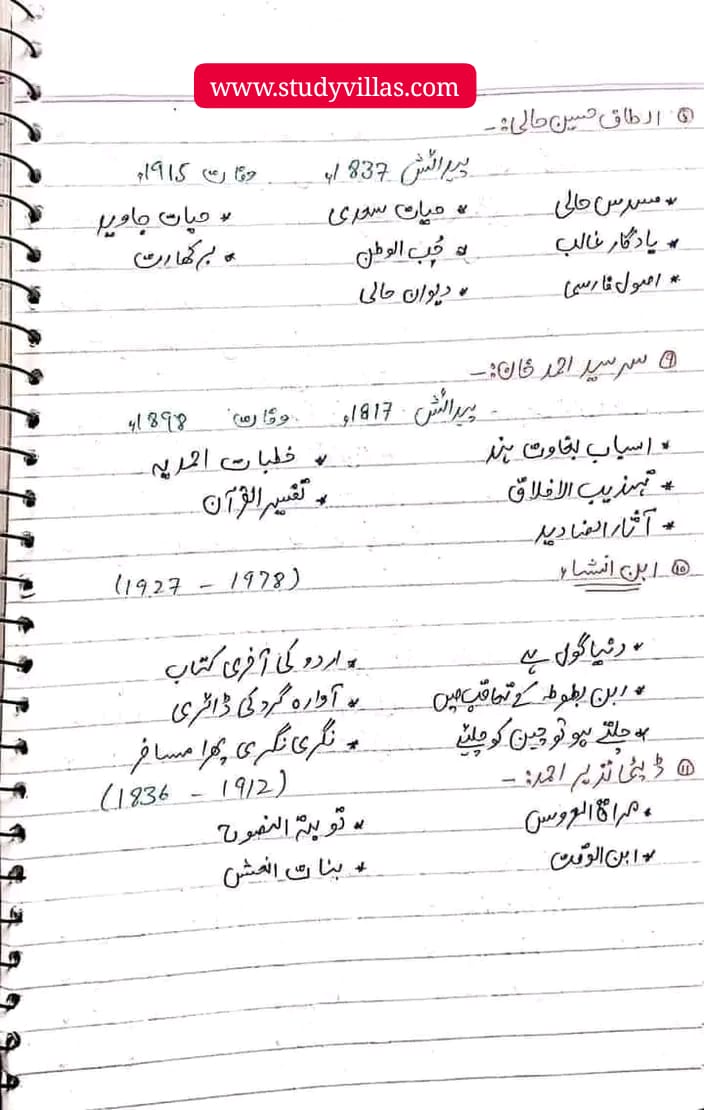 www.studyvillas.com
⑧ الطاف حسین حالی:-
پیدائش 1837ء وفات 1915ء
* مسدس حالی * حیات سعدی * حیات جاوید
* یادگار غالب * حُب الوطن * برکھارت
* اصول فارسی * دیوان حالی
⑨ سر سید احمد خان:-
پیدائش 1817ء وفات 1898ء
* اسباب بغاوت ہند * خطبات احمدیہ
* تہذیب الاخلاق * تفسیر القرآن
* آثار الصنادید
⑩ ابن انشاء (1927 - 1978)
* دنیا گول ہے * اردو کی آخری کتاب
* ابن بطوطہ کے تعاقب میں * آوارہ گرد کی ڈائری
* چلتے ہو تو چین کو چلیئے * نگری نگری پھرا مسافر
⑪ ڈپٹی نذیر احمد:- (1836 - 1912)
* مراۃ العروس * توبتہ النصوح
* ابن الوقت * بنات النعش